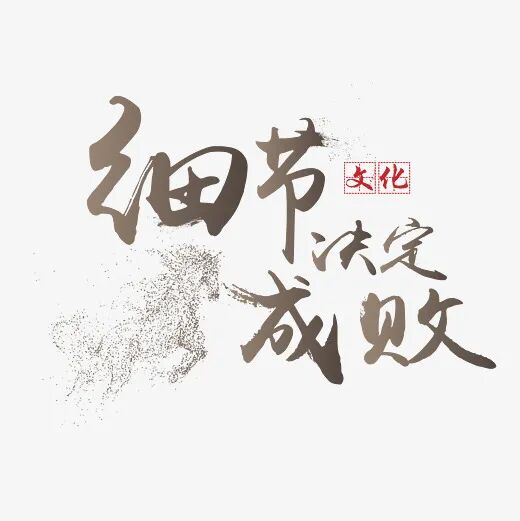 细节
文化
决定
成败